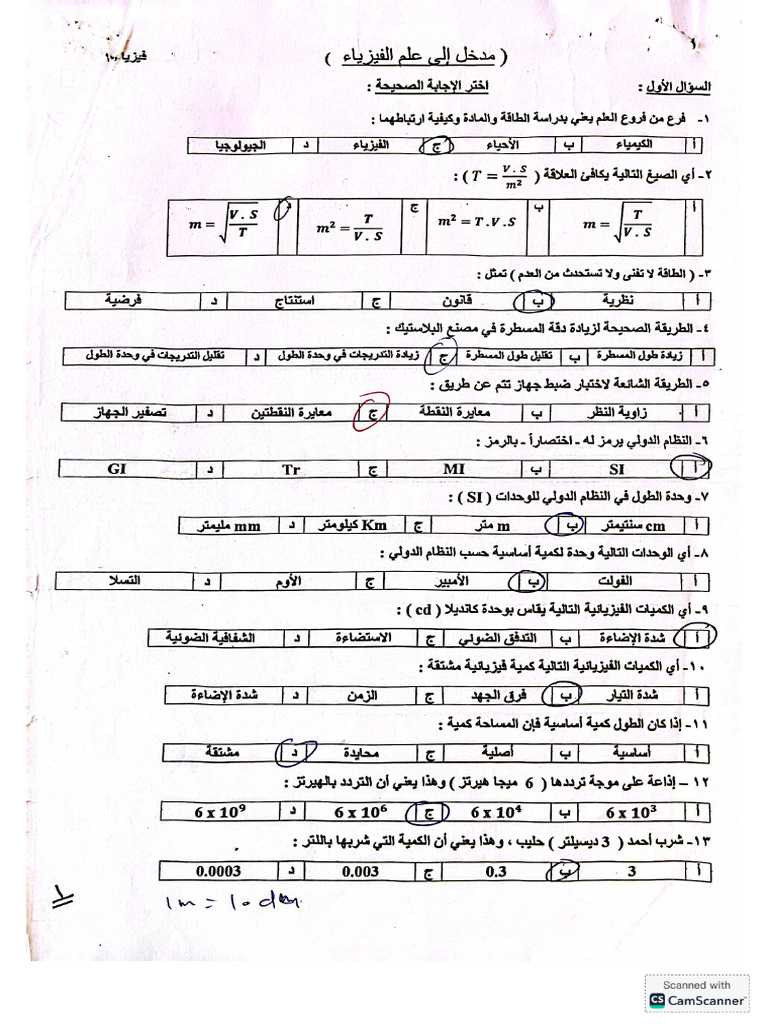 ١
فيزياء ١٠
( مدخل إلى علم الفيزياء )
السؤال الأول : اختر الإجابة الصحيحة :
١- فرع من فروع العلم يعني بدراسة الطاقة والمادة وكيفية ارتباطهما :
أ الكيمياء ب الأحياء ج الفيزياء د الجيولوجيا
٢- أي الصيغ التالية يكافئ العلاقة ( T = V . S / m² ) :
أ m = √(T / V . S) ب m² = T . V . S ج m² = T / V . S د m = √(V . S / T)
٣- ( الطاقة لا تفنى ولا تستحدث من العدم ) تمثل :
أ نظرية ب قانون ج استنتاج د فرضية
٤- الطريقة الصحيحة لزيادة دقة المسطرة في مصنع البلاستيك :
أ زيادة طول المسطرة ب تقليل طول المسطرة ج زيادة التدريجات في وحدة الطول د تقليل التدريجات في وحدة الطول
٥- الطريقة الشائعة لاختبار ضبط جهاز تتم عن طريق :
أ زاوية النظر ب معايرة النقطة ج معايرة النقطتين د تصفير الجهاز
٦- النظام الدولي يرمز له - اختصاراً - بالرمز :
أ SI ب MI ج Tr د GI
٧- وحدة الطول في النظام الدولي للوحدات ( SI ) :
أ cm سنتيمتر ب m متر ج Km كيلومتر د mm مليمتر
٨- أي الوحدات التالية وحدة لكمية أساسية حسب النظام الدولي :
أ الفولت ب الأمبير ج الأوم د التسلا
٩- أي الكميات الفيزيائية التالية يقاس بوحدة كانديلا ( cd ) :
أ شدة الإضاءة ب التدفق الضوئي ج الاستضاءة د الشفافية الضوئية
١٠- أي الكميات الفيزيائية التالية كمية فيزيائية مشتقة :
أ شدة التيار ب فرق الجهد ج الزمن د شدة الإضاءة
١١- إذا كان الطول كمية أساسية فإن المساحة كمية :
أ أساسية ب أصلية ج محايدة د مشتقة
١٢ – إذاعة على موجة ترددها ( 6 ميجا هيرتز ) وهذا يعني أن التردد بالهيرتز :
أ 6 x 10³ ب 6 x 10⁴ ج 6 x 10⁶ د 6 x 10⁹
١٣- شرب أحمد ( 3 ديسيلتر ) حليب ، وهذا يعني أن الكمية التي شربها باللتر :
أ 3 ب 0.3 ج 0.003 د 0.0003
1m = 10 dm
١
Scanned with
CS CamScanner